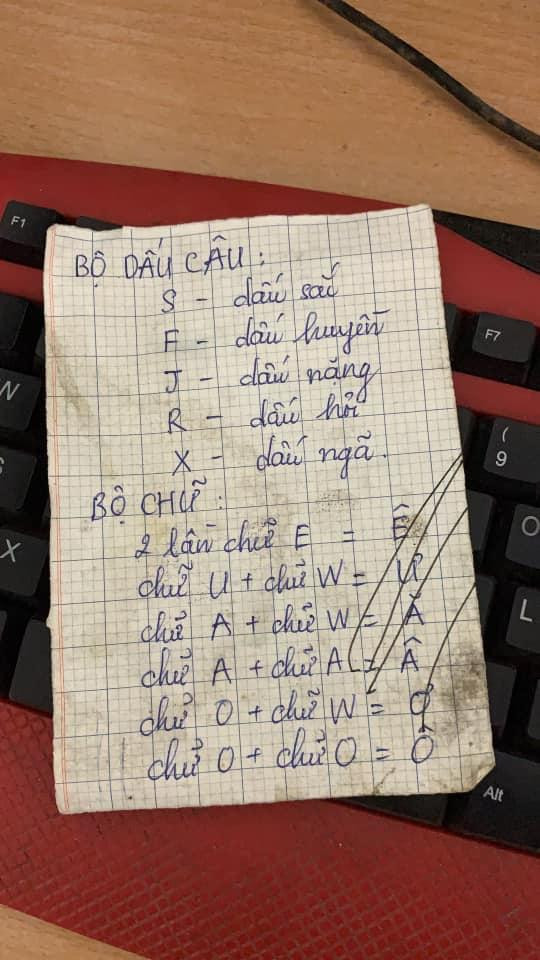 BỘ DẤU CÂU:
S - dấu sắc
F - dấu huyền
J - dấu nặng
R - dấu hỏi
X - dấu ngã.
BỘ CHỮ:
2 lần chữ E = Ê
chữ U + chữ W = Ư
chữ A + chữ W = Ă
chữ A + chữ A = Â
chữ O + chữ W = Ơ
chữ O + chữ O = Ô
F1
F7
(
9
O
L
Alt
W
X